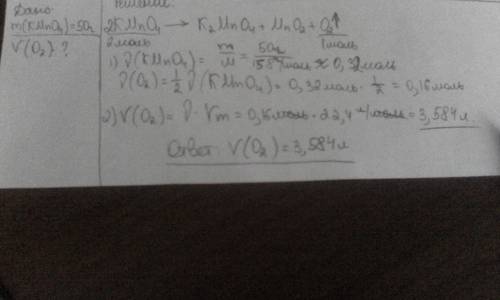 Дано:
m(KMnO₄)=50г
V(O₂)-?
Решение:
2KMnO₄ → K₂MnO₄ + MnO₂ + O₂↑
2моль 1моль
1) ν(KMnO₄) = m/M = 50г/158г/моль ≈ 0,32моль
ν(O₂) = 1/2 ν(KMnO₄) = 0,32моль · 1/2 = 0,16моль
2) V(O₂) = ν · Vm = 0,16моль · 22,4 л/моль = 3,584л
Ответ: V(O₂) = 3,584л